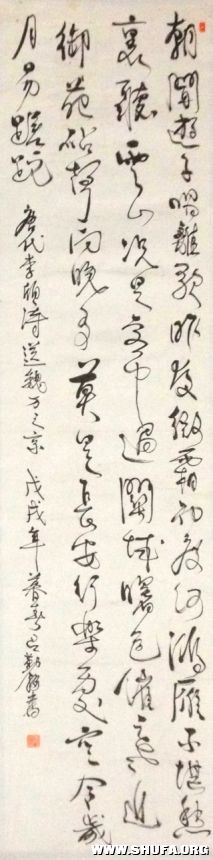 朝聞遊子唱離歌昨夜微霜初渡河鴻雁不堪愁
裏聽雲山況是客中過關城曙色催寒近
御苑砧聲向晚多莫是長安行樂處空令歲
月易蹉跎 唐代李頎詩送魏万之京 戊戌年暮春呂勤書
WWW.SHUFA.ORG